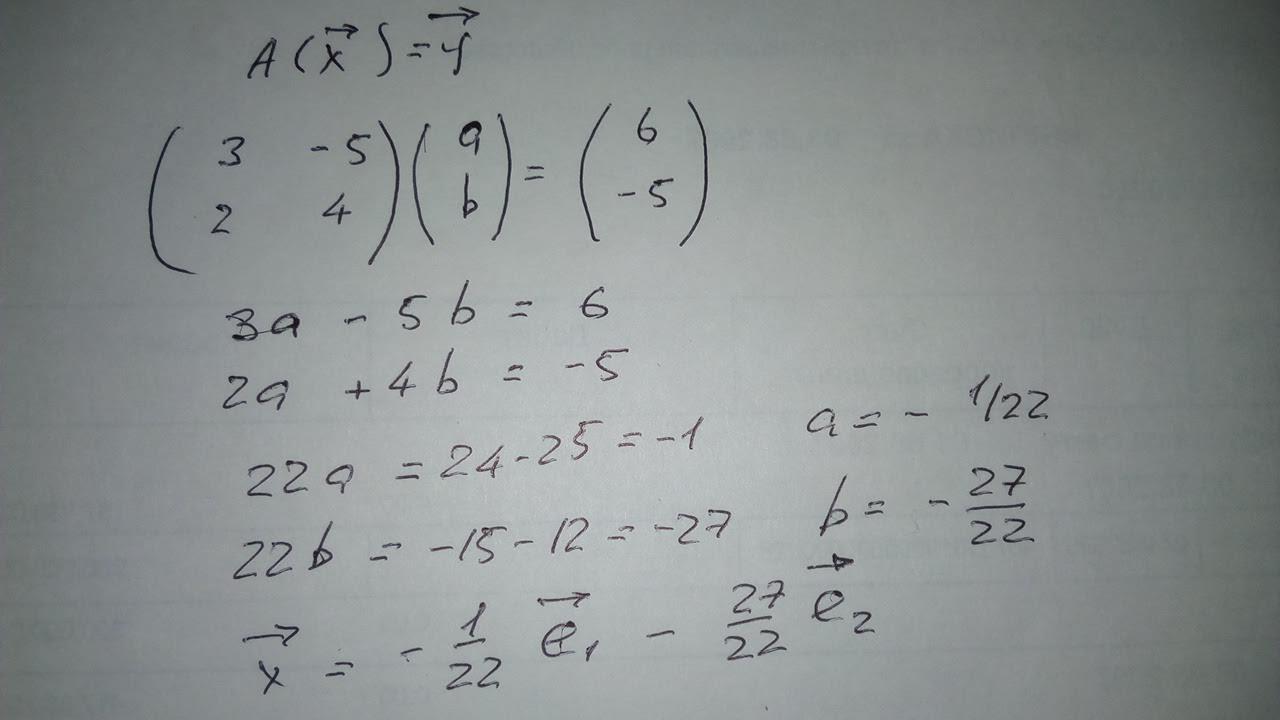 A(x⃗) = y⃗
( 3 -5 ) ( a ) = ( 6 )
( 2 4 ) ( b ) ( -5 )
3a - 5b = 6
2a + 4b = -5
22a = 24-25 = -1 a = - 1/22
22b = -15-12 = -27 b = - 27/22
x⃗ = - 1/22 e⃗₁ - 27/22 e⃗₂